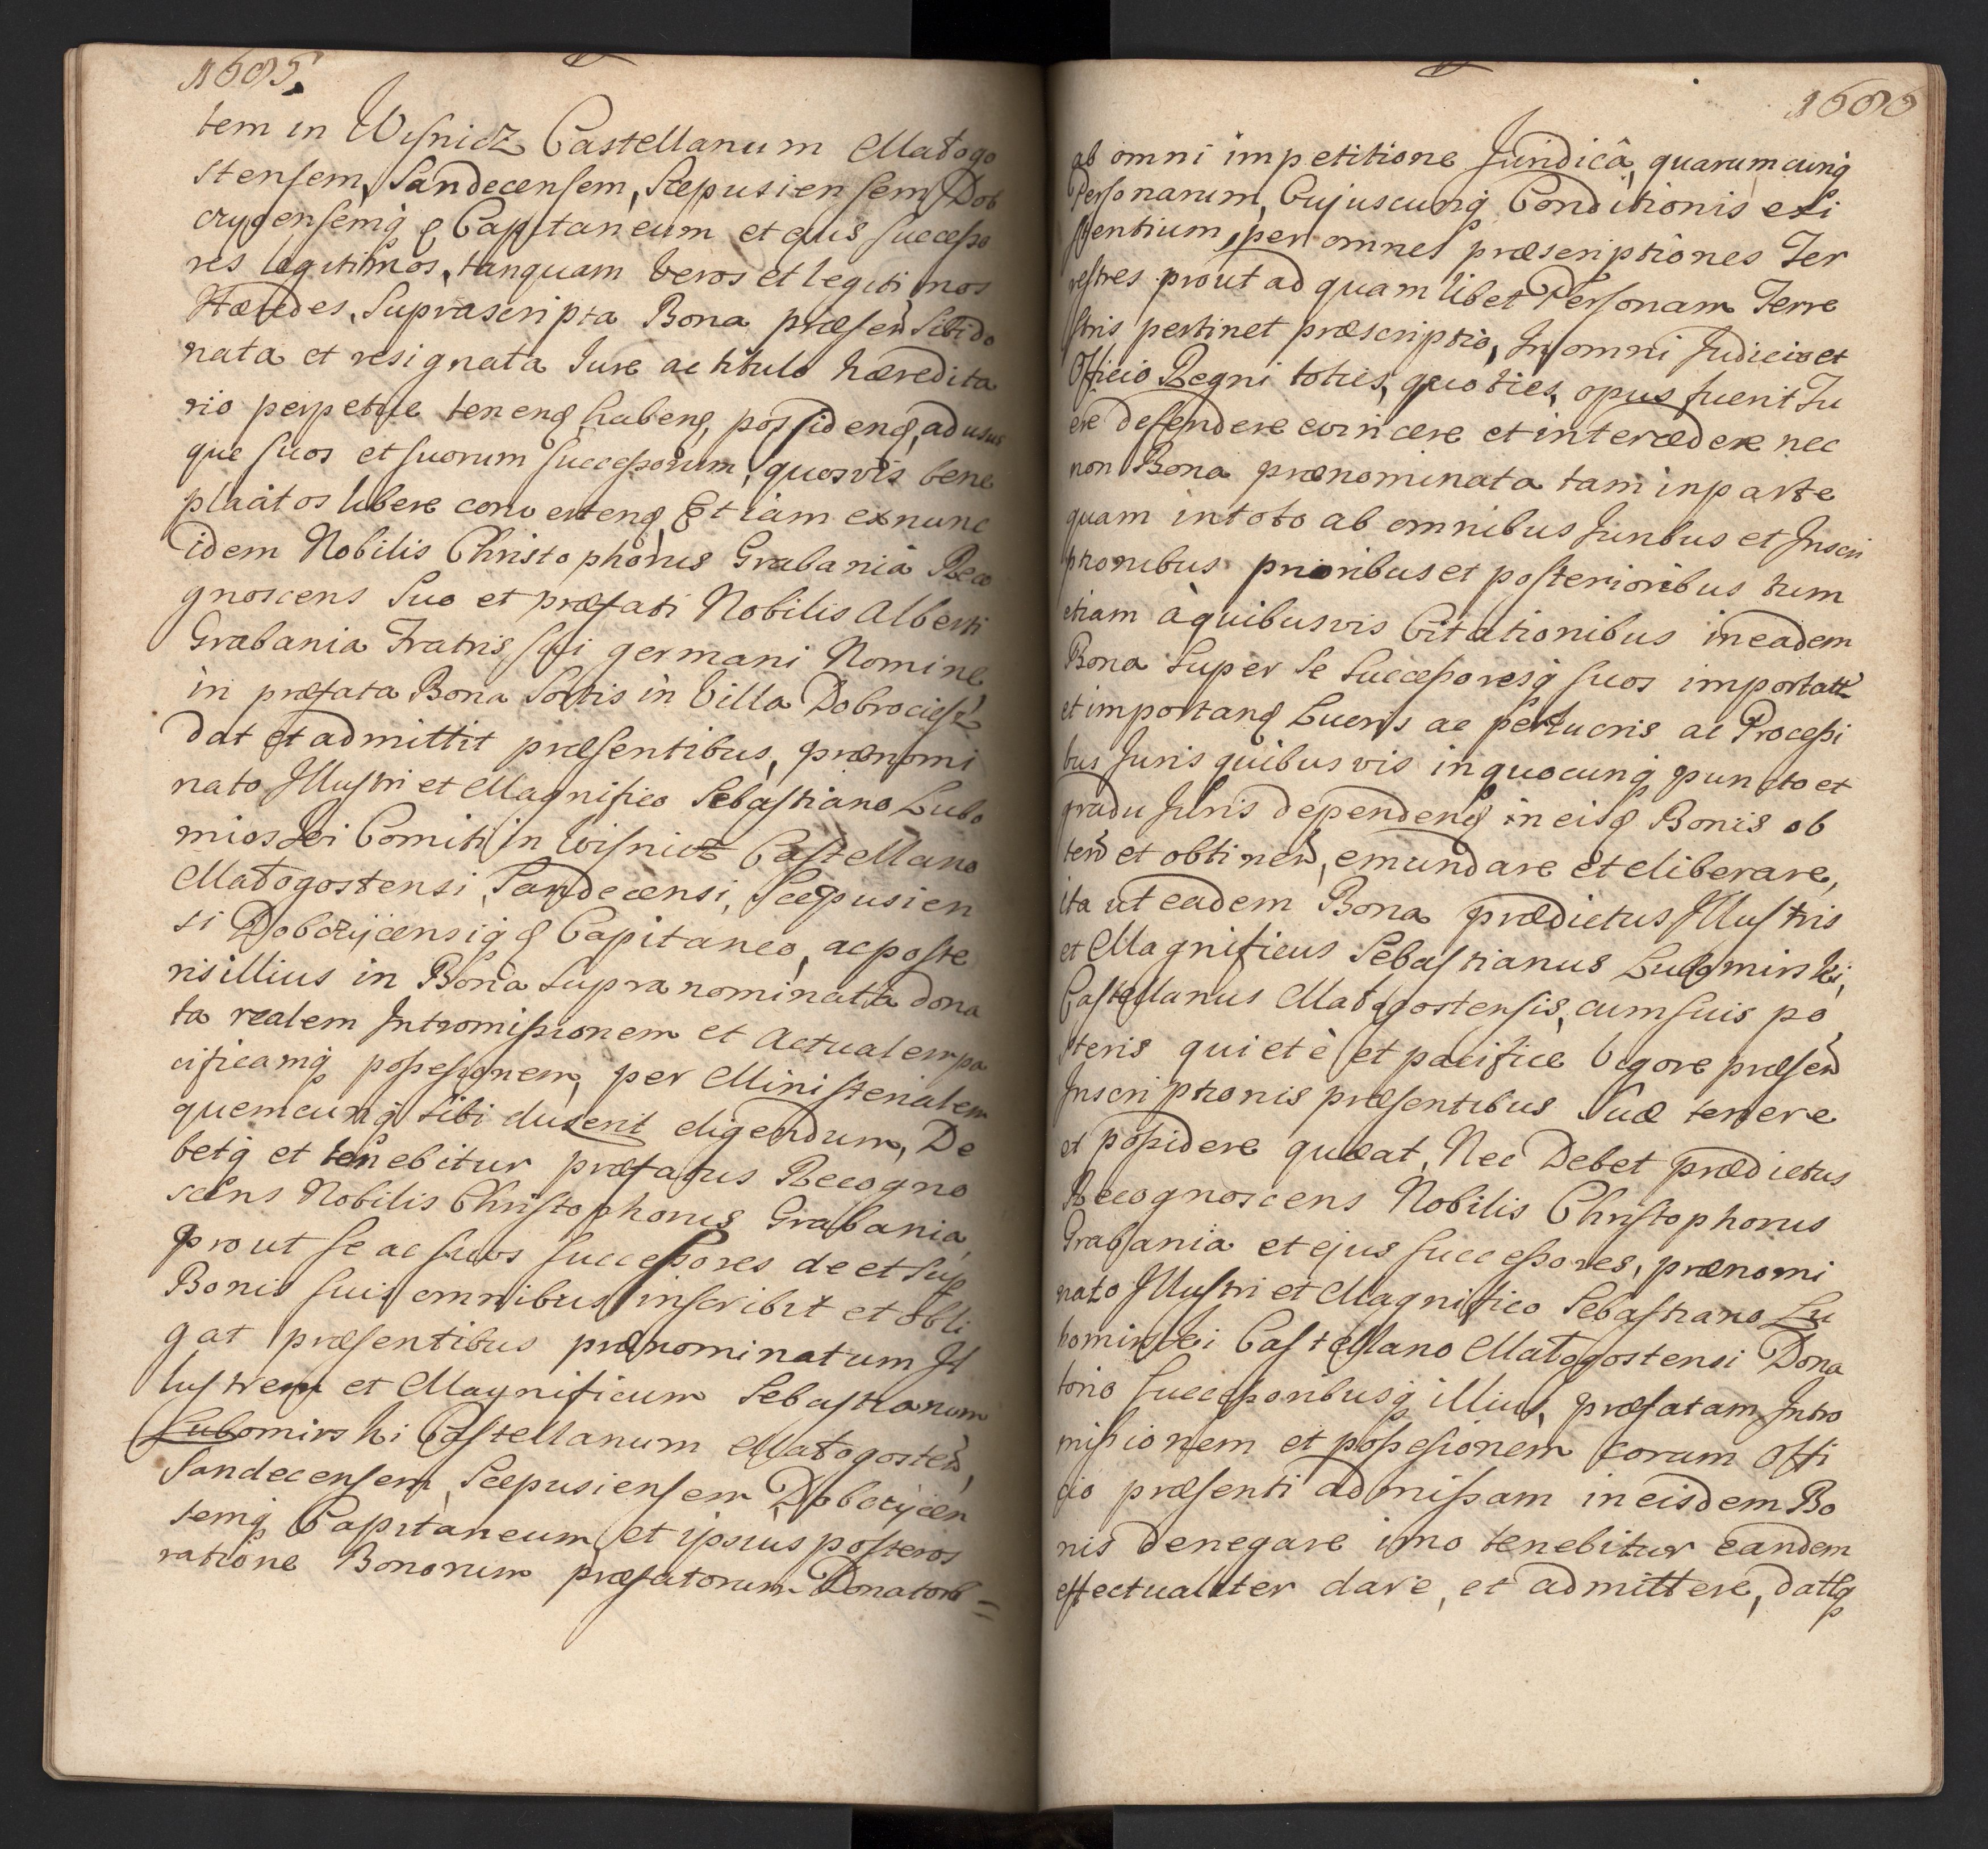 1605.
tem in Wiſnicz Castellanum Małogo
stenſem, Sandecenſem, Scepusienſem Dob
czycenſemq̨ Capitaneum et ejus ſucceſſo
res legitimos, tanquam veros et legitimos
Hæredes, Suprascripta Bona præſen̄ Sibi do
nata et resignata Jure ac titulo hæredita
rio perpetue tenenđ habenđ, poſſidenđ, ad usus
que ſuos et ſuorum ſucceſſorum, quosvis bene
placitos libere convertenđ, Et iam ex nunc
idem Nobilis Christophorus Grabania Reco
gnoscens Suo et præfati Nobilis Alberti
Grabania Fratris ſui germani Nomine
in præfata Bona Sortis in Villa Dobrocieſz
dat et admittit præſentibus, prænomi
nato Jlluſtri et Magnifico Sebaſtiano Lubo
mirski Comiti in Wiſnicz Caſtellano
Małogostensi, Sandecensi, Scepusien
si Dobczÿcensiq̨ Capitaneo, ac poſte
ris illius in Bona Supra nominata dona
ta realem Intromiſsionem et Actualem pa
cificamq̨ poſseſsionem, per Miniſterialem
quemcunq̨ Sibi duxerit eligendum, De
betq̨ et tenebitur præfatus Recogno
scens Nobilis Chriſtophorus Grabania,
prout ſe ac ſuos ſucceſſores de et Sup
Bonis ſuis omnibus inſcribit et obli
gat præſentibus prænominatum Jl
luſtrem et Magnificum Sebaſtianum
Lubomirski Caſtellanum Małogosten̄,
Sandecenſem, Scepusienſem Dobczÿcen
semq̨ Capitaneum et ipsius poſteros
ratione Bonorum præfatorum Donatorū =
1606
ab omni impetitione Juridicâ, quarumcunq̨
Perſonarum, Cujuscunq̨ Conditionis exi
ſtentium, per omnes præscriptiones Ter
reſtres prout ad quamlibet Perſonam Terre
ſtris pertinet præscriptio, In omni Judicio et
Officio Regni toties, quoties, opus fuerit Tu
ere defendere evincere et intercedere nec
non Bona prænominata tam in parte
quam in toto ab omnibus Juribus et Inscri
ptionibus prioribus et poſterioribus tum
etiam à quibusvis Citationibus in eadem
Bona Super Se Succeſsoresq̨ ſuos importatī
et importanđ Lucris ac perlucris ac Proceſsi
bus Juris quibusvis in quocunq̨ puncto et
gradu Juris dependenđ in eisđ Bonis ob
ten̄ et obtinen̄, emundare et eliberare,
ita ut eadem Bona prædictus Jlluſtris
et Magnificus Sebaſtianus Lubomirski,
Caſtellanus Małogostenſis, cum ſuis po
ſteris quietè et pacifice vigore præſen̄
Inscriptionis præſentibus Suæ tenere
et poſsidere queat, Nec Debet prædictus
Recognoscens Nobilis Chriſtophorus
Grabania et ejus ſucceſsores, prænomi
nato Jlluſtri et Magnifico Sebaſtiano Lu
bomirski Caſtellano Małogostensi Dona
torio ſucceſsoribusq̨ illius, præfatam Intro
miſsionem et poſseſsionem coram Offi
cio præſenti admiſsam in eisdem Bo
nis denegare imo tenebitur eandem
effectualiter dare, et admittere, datq̨